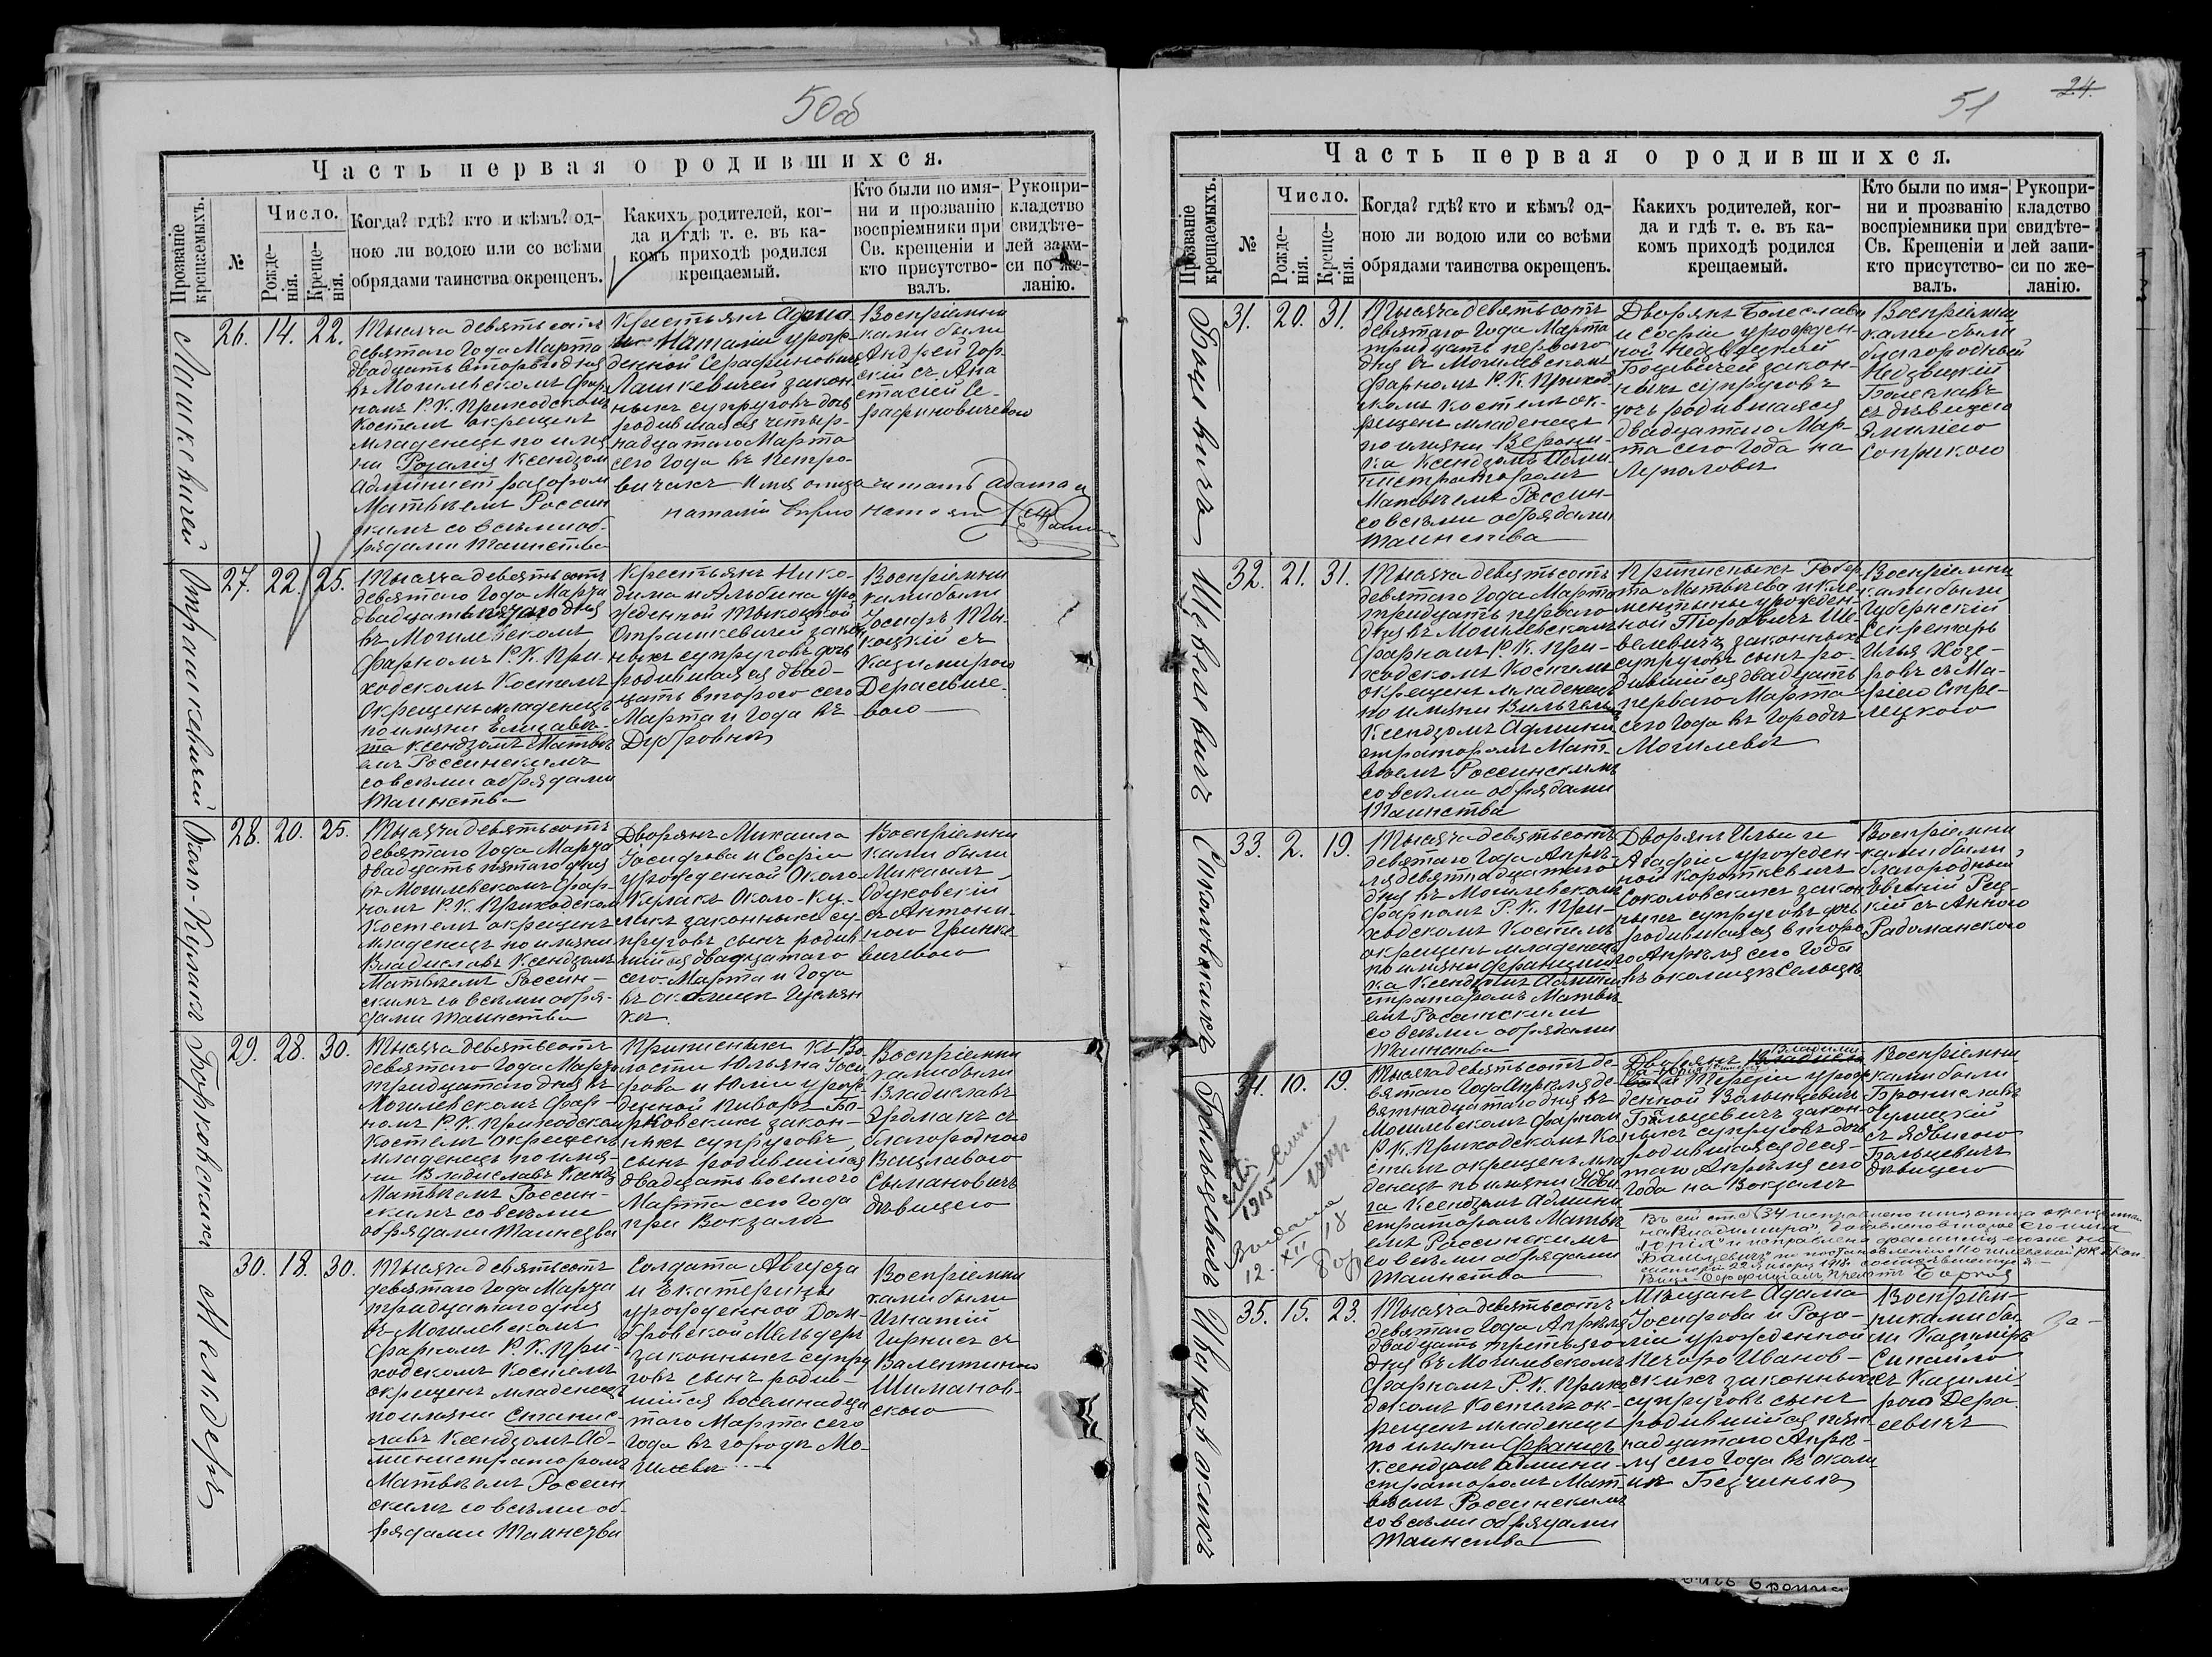 50об
Часть первая о родившихся.
Прозваніе крещаемыхъ.
№
Число.
Рожде-
нія.
Креще-
нія.
Когда? гдѣ? кто и кѣмъ? од-
ною ли водою или со всѣми
обрядами таинства окрещенъ.
Какихъ родителей, ког-
да и гдѣ т. е. въ ка-
комъ приходѣ родился
крещаемый.
Кто были по имя-
ни и прозванію
воспріемники при
Св. крещеніи и
кто присутство-
валъ.
Рукопри-
кладство
свидѣте-
лей запи-
си по же-
ланію.
Лашкевичей
26. 14. 22.
Тысяча девятьсотъ
девятаго Года Марта
двадцать второго дня
въ Могилевскомъ фар-
номъ Р. К. Приходскомъ
Костелѣ окрещенъ
младенецъ по имя
ни Розалія Ксендзом
Администраторомъ
Матвѣемъ Россин
скимъ со всѣми об-
рядами таинства
Крестьянъ Адама
и Наталіи урож-
денной Серафиновичъ
Лашкевичей закон
ныхъ супруговъ дочь
родившаяся четыр-
надцатаго Марта
сего Года въ Петро-
вичахъ Имя отца читать Адама и
Наталіи вѣрно
Воспріемни
ками были
Андрей Гор
скій съ Ана
стасіей Се-
рафиновичевою
Отрошкевичей
27. 22. 25.
Тысяча девятьсотъ
девятаго Года Марта
двадцать пятаго дня
въ Могилевскомъ
фарномъ Р. К. При-
ходскомъ Костелѣ
окрещенъ младенецъ
по имяни Елизаве-
та Ксендзомъ Матвѣ
емъ Россинскимъ
со всѣми обрядами
таинства
Крестьянъ Нико-
дима и Альбина уро
жденной Тыкоцкой
Отрашкевичей закон
ныхъ супруговъ дочь
родившаяся двад-
цать второго сего
Марта и Года въ
Дубровнѣ
Воспріемни
ками были
Іосифъ Ты-
коцкій съ
Казимирою
Дерасевиче-
вою
Около-Кулакъ
28. 20. 25.
Тысяча девятьсотъ
девятаго Года Марта
двадцать пятаго дня
въ Могилевскомъ фар-
номъ Р. К. Приходском
Костелѣ окрещенъ
младенецъ по имяни
Владиславъ Ксендзомъ
Матвѣемъ Россин-
скимъ со всѣми обря-
дами таинства
Дворянъ Михаила
Іосифова и Софіи
урожденной Около-
Кулакъ Около-Ку-
лакъ законныхъ су-
пруговъ сынъ родив
шійся двадцатаго
сего Марта и Года
въ околицѣ Гуслян
кѣ.
Воспріемни
ками были
Михаилъ
Одуховскій
съ Антони-
ною Гринке-
вичевою
Борковскихъ
29. 28. 30.
Тысяча девятьсотъ
девятаго Года Марта
тридцатаго дня въ
Могилевскомъ фар-
номъ Р. К. Приходском
Костелѣ окрещенъ
младенецъ по имя-
ни Владиславъ Ксендз
Матвѣемъ Россин-
скимъ со всѣми
обрядами Таинства
Приписныхъ къ Во
лости Юльяна Іоси
фова и Юліи урож
денной Пиворъ Бо-
рковскихъ закон-
ныхъ супруговъ
сынъ родившійся
двадцать восьмого
Марта сего Года
при Вокзалѣ
Воспріемни
ками были
Владиславъ
Эрдманъ съ
благородною
Вацлавою
Сымановичъ
дѣвицею
Мельдеръ
30. 18. 30.
Тысяча девятьсотъ
девятаго Года Марта
тридцатаго дня
въ Могилевскомъ
фарномъ Р. К. При-
ходскомъ Костелѣ
окрещенъ младенецъ
по имяни Станис-
лавъ Ксендзомъ Ад-
министраторомъ
Матвѣемъ Россин
скимъ со всѣми об-
рядами Таинства
Солдата Августа
и Екатерины
урожденной Дом-
бровской Мельдеръ
законныхъ супру
говъ сынъ родив-
шійся восемнадца
таго Марта сего
Года въ городѣ Мо-
гилевѣ
Воспріемни
ками были
Игнатій
Чирницъ съ
Валентиною
Шиманов-
скою
51
24.
Часть первая о родившихся.
Прозваніе крещаемыхъ.
№
Число.
Рожде-
нія.
Креще-
нія.
Когда? гдѣ? кто и кѣмъ? од-
ною ли водою или со всѣми
обрядами таинства окрещенъ.
Какихъ родителей, ког-
да и гдѣ т. е. въ ка-
комъ приходѣ родился
крещаемый.
Кто были по имя-
ни и прозванію
воспріемники при
Св. Крещеніи и
кто присутство-
валъ.
Рукопри-
кладство
свидѣте-
лей запи-
си по же-
ланію.
31. 20. 31.
Тысяча девятьсотъ
девятаго Года Марта
тридцать перваго
дня въ Могилевскомъ
фарномъ Р. К. Приход
скомъ Костелѣ ок-
рещенъ младенецъ
по имяни Верони-
ка Ксендзомъ Адми
нистраторомъ
Матвѣемъ Россин-
со всѣми обрядами
таинства
Дворянъ Болеслава
и Софіи урожден-
ной Недзвецкій
Боцевичей закон-
ныхъ супруговъ
дочь родившаяся
двадцатаго Мар-
та сего Года на
Луполовѣ
Воспріемни
ками были
благородный
Недзвецкій
Болеславъ
съ дѣвицею
Эмиліею
Соприкою
Шевелевичъ
32. 21. 31.
Тысяча девятьсотъ
девятаго Года Марта
тридцать перваго
дня въ Могилевскомъ
фарномъ Р. К. При-
ходскомъ Костелѣ
окрещенъ младенецъ
по имяни Вильгельм
Ксендзомъ Админи
страторомъ Мат-
вѣемъ Россинскимъ
со всѣми обрядами
Таинства
Приписныхъ Робер
та Матвѣева и Кле
ментины урожден-
ной Піоровичъ Ше-
велевичъ законныхъ
супруговъ сынъ ро-
дившійся двадцать
перваго Марта
сего Года въ Городѣ
Могилевѣ
Воспріемни
ками были
Губернскій
Секретарь
Илья Козе-
ровъ съ Ма-
ріею Стре-
лецкою
Соколовскихъ
33. 2. 19.
Тысяча девятьсотъ
девятаго Года Апрѣ-
ля девятнадцатаго
дня въ Могилевскомъ
фарномъ Р. К. При-
ходскомъ Костелѣ
окрещенъ младенецъ
по имяни Францишка
Ксендзомъ Админи
страторомъ Матвѣ
емъ Россинскимъ
со всѣми обрядами
Таинства
Дворянъ Ильи и
Агафіи урожден-
ной Короткевичъ
Соколовскихъ закон
ныхъ супруговъ дочь
родившаяся второ
го Апрѣля сего Года
въ околицѣ Сельцѣ
Воспріемни
ками были
благородный
Евгеній Рец-
кій съ Анною
Радоманскою
34. 10. 19.
Тысяча девятьсотъ де-
вятаго Года Апрѣля де-
вятнадцатаго дня въ
Могилевскомъ фарном
Р. К. Приходскомъ Ко
стелѣ окрещенъ мла
денецъ по имяни Ядви
га Ксендзомъ Админи
страторомъ Матвѣ
емъ Россинскимъ
со всѣми обрядами
Таинства
1915
12. XII 18
Владими
Дворянъ
ра-Юрія
Терезіи урож
денной Волынцевичъ
Бальцевичъ закон-
ныхъ супруговъ дочь
родившаяся деся-
таго Апрѣля сего
Года на Вокзалѣ
Въ сей ст. № 34 исправлено имя отца окрещенной
на „Владимира", добавлено второе его имя
„Юрія" и исправлена фамилія ихъ на
„Бальцевичъ" по постановленію Могилевской РК Кон-
систоріи 22 Января 1918 состоявшемуся
Вице-Оффиціалъ Прелатъ
Воспріемни
ками были
Брониславъ
Чулицкій
съ Ядвигою
Бальцевичъ
дѣвицею
Ивановскихъ
35. 15. 23.
Тысяча девятьсотъ
девятаго Года Апрѣля
двадцать третьяго
дня въ Могилевскомъ
фарномъ Р. К. Прихо
дскомъ Костелѣ ок-
рещенъ младенецъ
по имяни Францъ
Ксендзомъ Админи-
страторомъ Мат-
вѣемъ Россинскимъ
со всѣми обрядами
Таинства
Мѣщанъ Адама
Іосифова и Роза-
ліи урожденной
Печоро Иванов-
скихъ законныхъ
супруговъ сынъ
родившійся пят
надцатаго Апрѣ-
ля сего Года въ околи
цѣ Безчиньѣ
Воспріем-
никами бы-
ли Казиміръ
Синайло
съ Казимі-
рою Дера
севичъ
За-